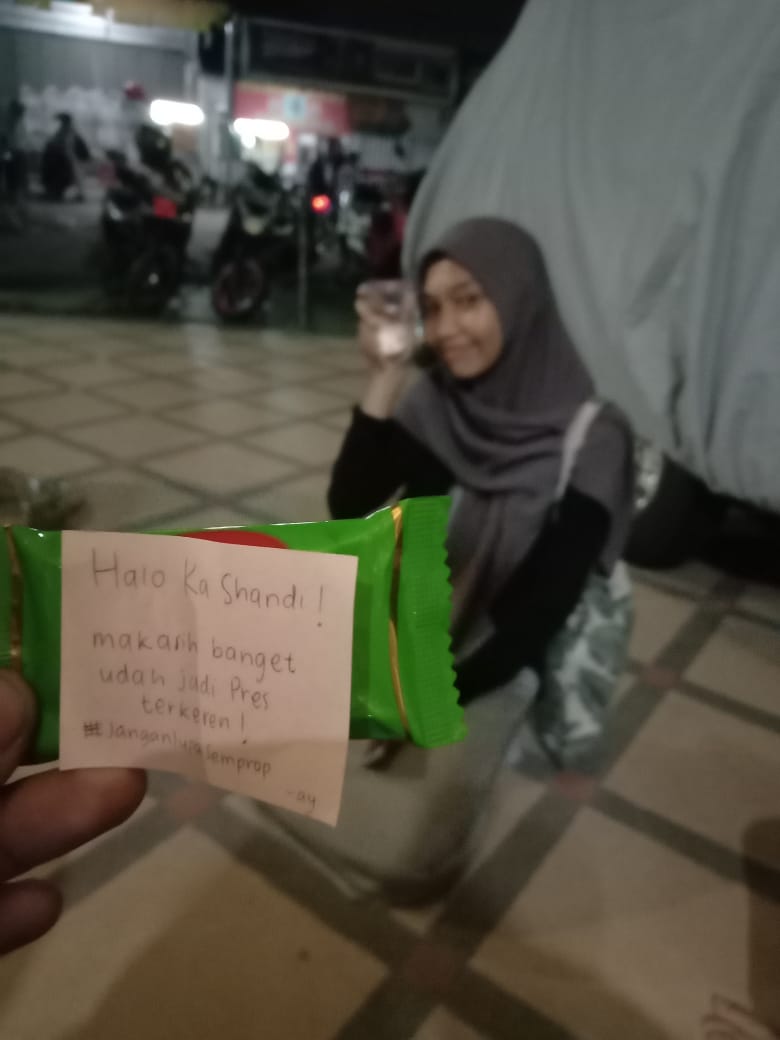 Halo Ka Shandi!
makasih banget
udah jadi Pres
terkeren!
#Janganlupasemprop
-ay